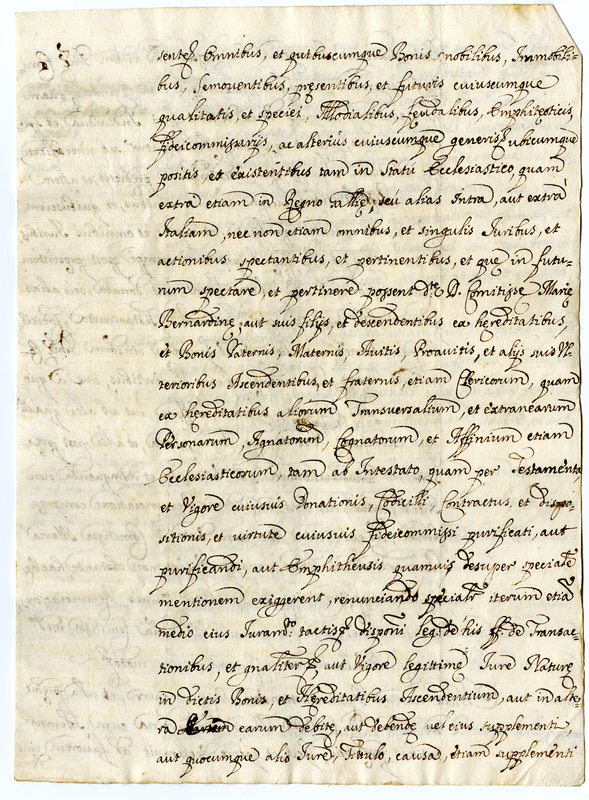 sentez omnibus, et quibuscumque Bonis mobilibus, Immobili-
bus, Semoventibus, presentibus, et futuris cuiuscumque
qualitatis, et speciei, Allodialibus, feudalibus, Emphiteoticis
fideicommissarijs, ac alterius cuiuscumque generis, ubicumque
positis, et existentibus tam in Statu Ecclesiastico, quam
extra etiam in Regno Gallie, seu alias Intra, aut extra
Italiam, nec non etiam omnibus, et singulis Iuribus, et
actionibus spectantibus, et pertinentibus, et que in futu-
rum spectare, et pertinere possent dte D. Comitisse Marie
Bernardine, aut suis filijs, et descendentibus ex hereditatibus,
et Bonis Paternis, Maternis, Avitis, Proavitis, et alijs suis Ul-
terioribus Ascendentibus, et fraternis, etiam Clericorum, quam
ex hereditatibus aliorum Transversalium, et extranearum
Personarum, Agnatorum, Cognatorum, et Affinium etiam
Ecclesiasticorum, tam ab Intestato, quam per Testamenta,
et Vigore cuiusuis Donationis, Codicilli, Contractus, et dispo-
sitionis, et virtute cuiusuis fideicommissi purificati, aut
purificandi, aut Emphitheusis quamuis desuper speciale
mentionem exiggerent, renunciando specialr iterum etia
medio eius Iuramto. tactis disponi leg. de his ff. de Transac-
tionibus, et gnaliter, aut Vigore legittime Iure Nature
in dictis Bonis, et Hereditatibus Ascendentium, aut in alte-
ra earum debite, aut debende vel eius supplementi,
aut quocumque alio Iure, Tittulo, causa, etiam supplementi